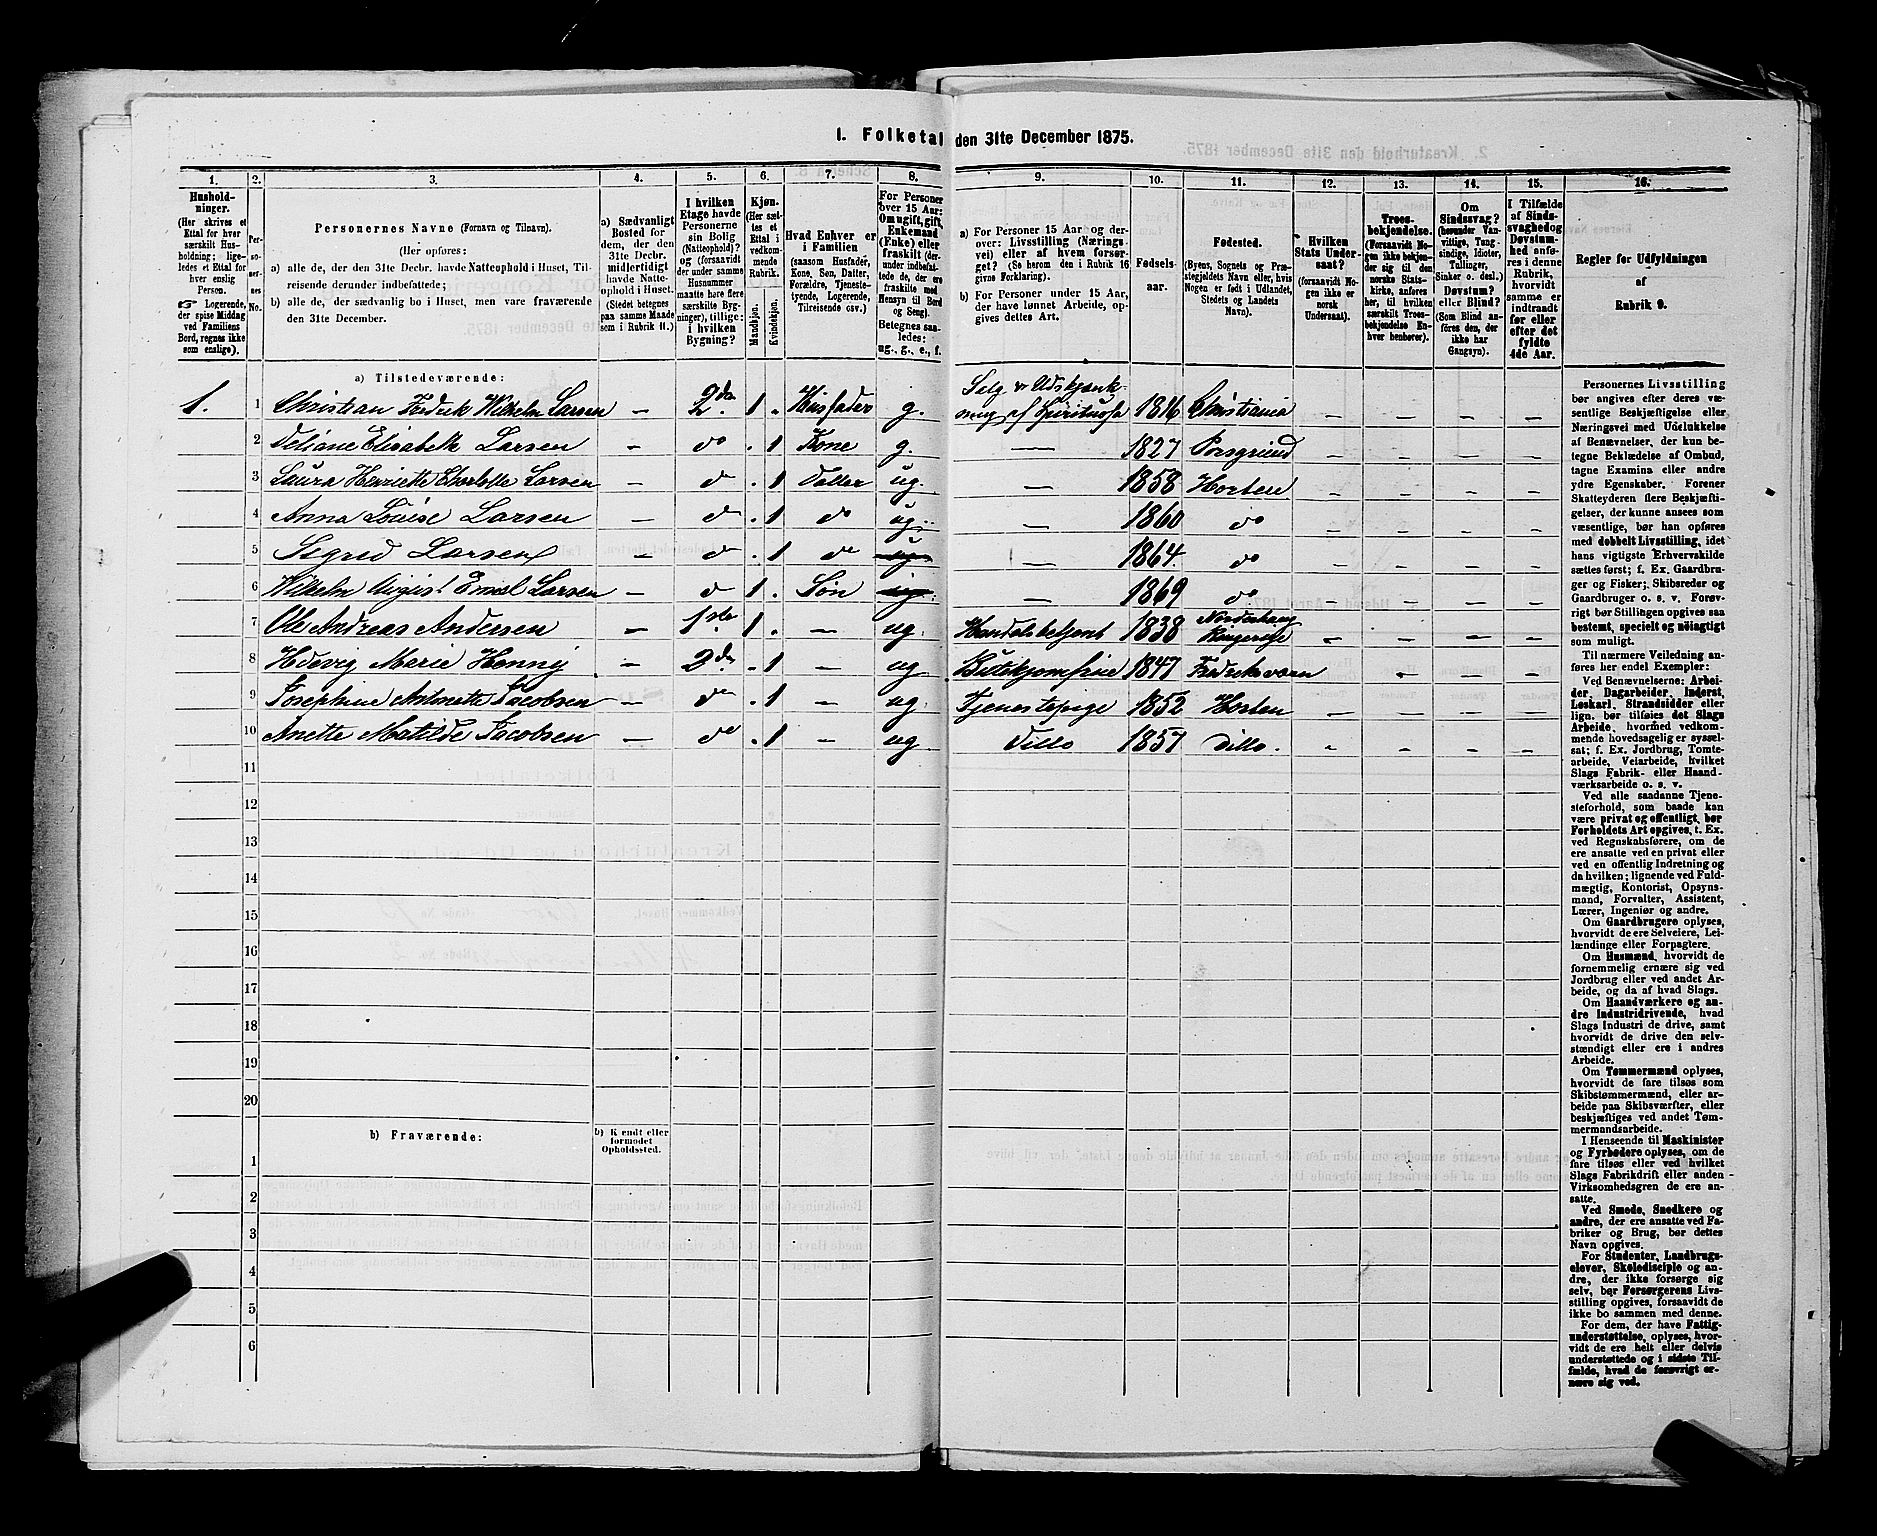 1. Folketal den 31te December 1875.
1. 2. 3. 4. 5. 6. 7. 8. 9. 10. 11. 12. 13. 14. 15. 16.
Hushold-
ninger.
(Her skrives et
Ettal for hver
særskilt Hus-
holdning; lige-
ledes et Ettal for
hver enslig
Person.
☞ Logerende,
der spise Middag
ved Familiens
Bord, regnes ikke
som enslige).
Per-
so-
ner-
nes
No.
Personernes Navne (Fornavn og Tilnavn).
(Her opføres:
a) alle de, der den 31te Decbr. havde Natteophold i Huset, Til-
reisende derunder indbefattede;
b) alle de, der sædvanlig bo i Huset, men vare fraværende
den 31te December.
a) Sædvanligt
Bosted for
dem, der den
31te Decbr.
midlertidigt
havde Natte-
ophold i Huset.
(Stedet betegnes
paa samme Maade
som i Rubrik 11.)
I hvilken
Etage havde
Personerne
sin Bolig
(Natteophold)?
og (forsaavidt
der under samme
Husnummer
maatte høre flere
særskilte Byg-
ninger), tillige:
i hvilken
Bygning?
Kjøn.
(Her sæt-
tes et
Ettal i
vedkom-
mende
Rubrik.
Mandkjøn.
Kvindekjøn.
Hvad Enhver er
i Familien
(saasom Husfader,
Kone, Søn, Datter,
Forældre, Tjeneste-
tyende, Logerende,
Tilreisende osv.)
For Personer
over 15 Aar:
Om ugift, gift,
Enkemand
(Enke) eller
fraskilt (der-
under indbefat-
tede de, der ere
fraskilte med
Hensyn til Bord
og Seng).
Betegnes saa-
ledes:
ug., g., e., f.
a) For Personer 15 Aar og der-
over: Livsstilling (Nærings-
vei) eller af hvem forsør-
get? (Se herom den i Rubrik 16
givne Forklaring).
b) For Personer under 15 Aar,
der have lønnet Arbeide, op-
gives dettes Art.
Fødsels-
aar.
Fødested.
(Byens, Sognets og Præ-
stegjeldets Navn eller, hvis
Nogen er født i Udlandet,
Stedets og Landets
Navn).
Hvilken
Stats Under-
saat?
(forsaavidt No-
gen ikke er
norsk
Undersaat).
Troes-
bekjendelse.
(Forsaavidt No-
gen ikke bekjen-
der sig til den
norske Stats-
kirke, anføres
her, til hvilken
særskilt Troes-
bekjendelse En-
hver henhører).
Om
Sindssvag?
(herunder Van-
vittige, Tung-
sindige, Idioter,
Tullinger,
Sinker o. desl.)
Døvstum?
eller Blind?
(Som Blind an-
føres den, der
ikke har
Gangsyn).
I Tilfælde
af Sinds-
svaghed og
Døvstum-
hed anfø-
res i denne
Rubrik,
hvorvidt
samme er
indtraadt
før eller
efter det
fyldte
4de Aar.
Regler for Udfyldningen
af
Rubrik 9.
a) Tilstedeværende:
1. 1 Christian Fredrik Wilhelm Larsen — 2den 1 . Husfader g. Salg & Udskjænk-
ning af Spirituosa 1816 Christiania — — — —
2 Larsen — do . 1 Kone g. — 1827 Porsgrund — — — —
3 Laura Henriette Charlotte Larsen — do . 1 Datter ug. — 1858 Horten — — — —
4 Anna Louise Larsen — do . 1 do ug. — 1860 do — — — —
5 Sigrid Larsen — do . 1 do ug — 1864. do — — — —
6 Wilhelm August Larsen — do 1 . Søn ug. — 1869 do — — — —
7 Ole Andreas Andersen — 1ste 1 . — ug. Handelsbetjent 1838 Norderhaug
Ringerige — — — —
8 Hedevig Marie — 2den . 1 — ug Butikjomfrue 1847 Fredriksværn — — —
9 Josephine Antonette Jacobsen — do . 1 — ug. Tjenestepige 1852 Horten — — — —
10 Anette Matilde Jacobsen — do . 1 — ug Ditto 1857 Ditto. — — — —
11
12
13
14
15
16
17
18
19
20
b) Fraværende:
b) Kjendt eller
formodet
Opholdssted.
1
2
3
4
5
6
Personernes Livsstilling
bør angives efter deres væ-
sentlige Beskjæftigelse eller
Næringsvei med Udelukkelse
af Benævnelser, der kun be-
tegne Beklædelse af Ombud,
tagne Examina eller andre
ydre Egenskaber. Forener
Skatteyderen flere Beskjæfti-
gelser, der kunne ansees som
væsentlige, bør han opføres
med dobbelt Livsstilling, idet
hans vigtigste Erhvervskilde
sættes først; f. Ex. Gaardbru-
ger og Fisker; Skibsreder og
Gaardbruger o. s. v. Forøv-
rigt bør Stillingen opgives saa
bestemt, specielt og nøiagtigt
som muligt.
Til nærmere Veiledning an-
føres her endel Exempler:
Ved Benævnelserne: Arbei-
der, Dagarbeider, Inderst,
Løskarl, Strandsidder eller
lign. bør tilføies det Slags
Arbeide, hvormed vedkom-
mende hovedsagelig er syssel-
sat; f. Ex. Jordbrug, Tomte-
arbeide, Veiarbeide, hvilket
Slags Fabrik- eller Haand-
værksarbeide o. s. v.
Ved alle saadanne Tjene-
steforhold, som baade kan
være privat og offentligt, bør
Forholdets Art opgives, t. Ex.
ved Regnskabsførere, om de
ere ansatte ved en privat eller
ved en offentlig Indretning og
da hvilken; lignende ved Fuld-
mægtig, Kontorist, Opsyns-
mand, Forvalter, Assistent,
Lærer, Ingeniør og andre.
Om Gaardbrugere oplyses,
hvorvidt de ere Selveiere, Lei-
lændinge eller Forpagtere.
Om Husmænd, hvorvidt de
fornemmelig ernære sig ved
Jordbrug eller ved andet Ar-
beide, og da af hvad Slags.
Om Haandværkere og an-
dre Industridrivende, hvad
Slags Industri de drive, samt
hvorvidt de drive den selv-
stændigt eller ere i andres
Arbeide.
Om Tømmermænd oplyses,
hvorvidt de fare tilsøs som
Skibstømmermænd, eller ar-
beide paa Skibsværfter, eller
beskjæftiges ved andet Tøm-
mermandsarbeide.
I Henseende til Maskinister
og Fyrbødere oplyses, om de
fare tilsøs eller ved hvilket
Slags Fabrikdrift eller anden
Virksomhedsgren de ere an-
satte.
Ved Smede, Snedkere og
andre, der ere ansatte ved Fa-
briker og Brug, bør dettes
Navn opgives.
For Studenter, Landbrugs-
elever, Skoledisciple og an-
dre, der ikke forsørge sig
selv, bør Forsørgerens Livs-
stilling opgives, forsaavidt de
ikke bo sammen med denne.
For dem, der have Fattig-
understøttelse, oplyses, hvor-
vidt de ere helt eller delvis
understøttede og i sidste Til-
fælde, hvad de forøvrigt er-
nære sig ved.